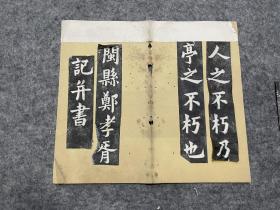 人之不朽乃
亭之不朽也
閩縣鄭孝胥
記并書